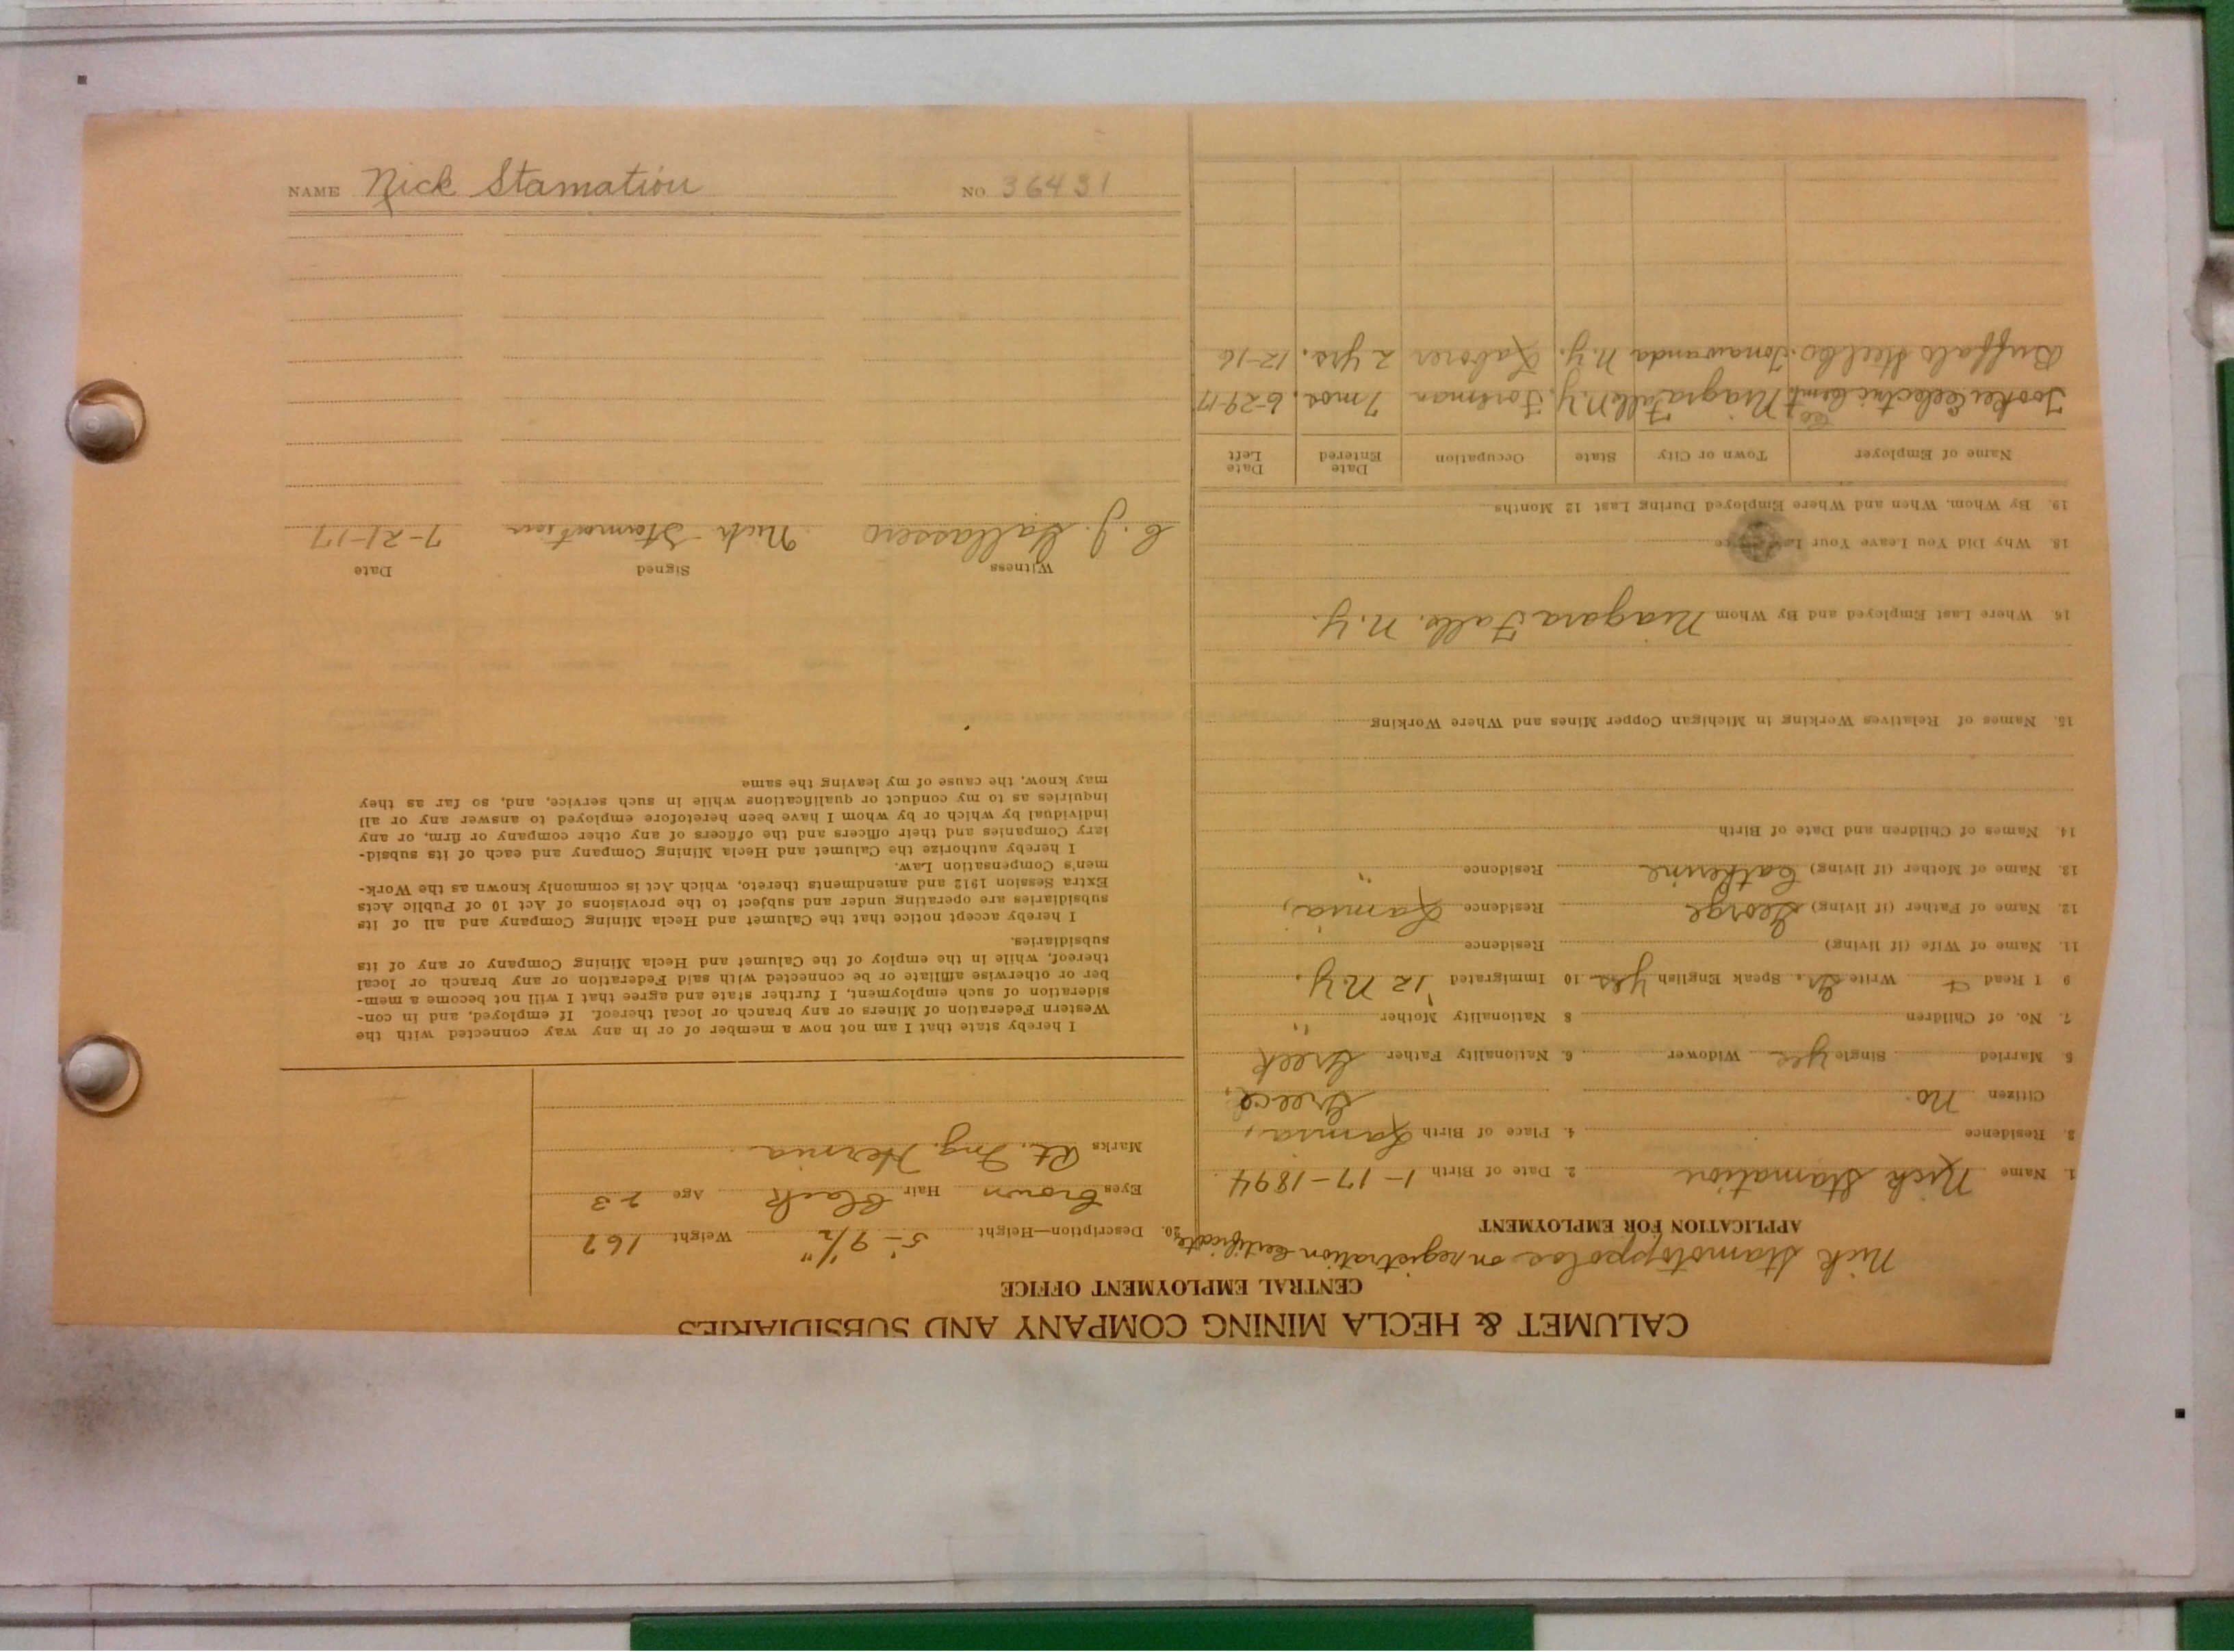 NAME Nick Stamation NO 36431
CALUMET & HECLA MINING COMPANY AND SUBSIDIARIES
CENTRAL EMPLOYMENT OFFICE
Nick Stamotoppolos on registration Certificate
APPLICATION FOR EMPLOYMENT
1. Name Nick Stamation 2. Date of Birth 1-17-1894
3. Residence 4. Place of Birth Lamia,
Citizen No Greece,
5. Married Single yes Widower 6. Nationality Father Greek
7. No. of Children 8 Nationality Mother "
9 I Read & Write Gr. Speak English yes 10 Immigrated '12 N.Y.
11. Name of Wife (if living) Residence
12. Name of Father (if living) George Residence Lamia,
13. Name of Mother (if living) Catherine Residence "
14. Names of Children and Date of Birth
15. Names of Relatives Working in Michigan Copper Mines and Where Working
16. Where Last Employed and By Whom Niagara Falls. N.Y.
18. Why Did You Leave Your
19. By Whom, When and Where Employed During Last 12 Months
Name of Employer Town or City State Occupation Date Entered Date Left
Electric Niagra Falls N.Y. Foreman 7 mos. 6-29-17
Buffalo Steel Co. Tonawanda N.Y. Laborer 2 yrs. 12-16
20. Description—Height 5'-9 1/2" Weight 167
Eyes Brown Hair Black Age 23
Marks Rt. Ing. Hernia
I hereby state that I am not now a member of or in any way connected with the
Western Federation of Miners or any branch or local thereof. If employed, and in con-
sideration of such employment, I further state and agree that I will not become a mem-
ber or otherwise affiliate or be connected with said Federation or any branch or local
thereof, while in the employ of the Calumet and Hecla Mining Company or any of its
subsidiaries.
I hereby accept notice that the Calumet and Hecla Mining Company and all of its
subsidiaries are operating under and subject to the provisions of Act 10 of Public Acts
Extra Session 1912 and amendments thereto, which Act is commonly known as the Work-
men's Compensation Law.
I hereby authorize the Calumet and Hecla Mining Company and each of its subsid-
iary Companies and their officers and the officers of any other company or firm, or any
individual by which or by whom I have been heretofore employed to answer any or all
inquiries as to my conduct or qualifications while in such service, and, so far as they
may know, the cause of my leaving the same
Witness Signed Date
C. J. Nick Stamation 7-21-17